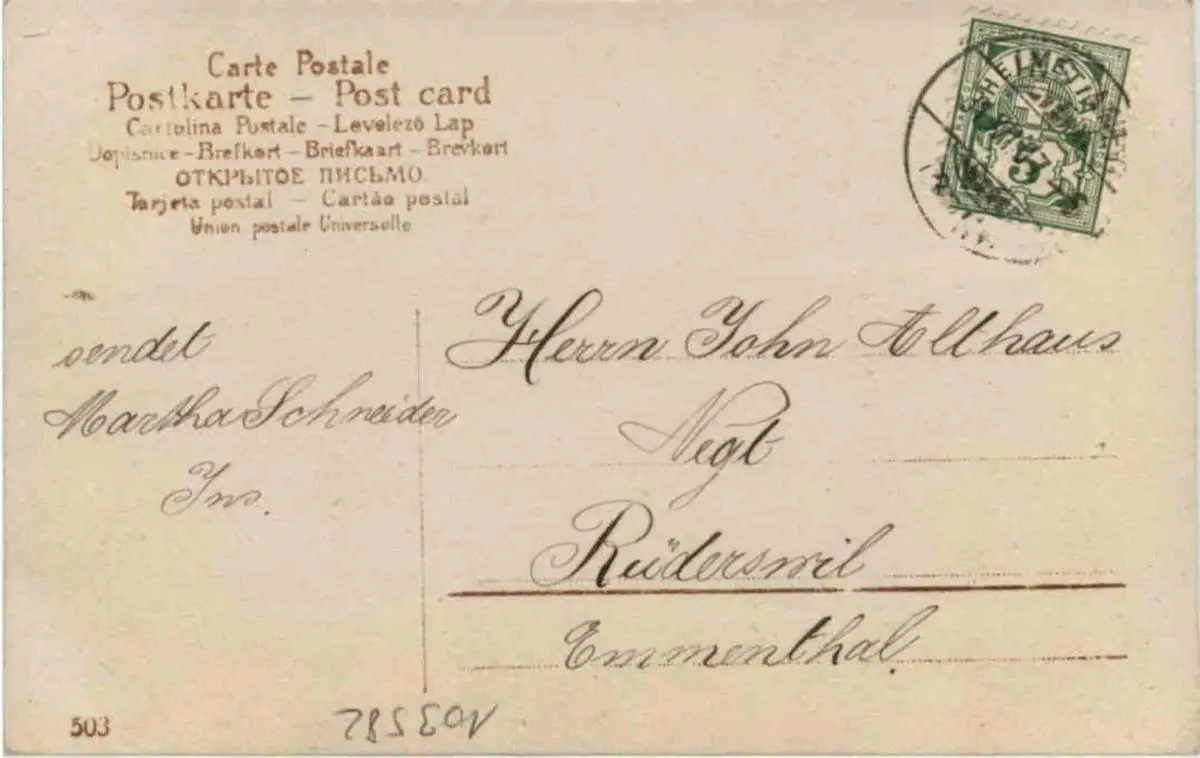 Carte Postale
Postkarte – Post card
Cartolina Postale – Levelező Lap
Dopisnice – Brefkort – Briefkaart – Brevkort
ОТКРЫТОЕ ПИСЬМО.
Tarjeta postal – Cartão postal
Union postale Universelle
HELVETIA
5
sendet
Martha Schneider
Ins.
Herrn John Althaus
Negt
Rüderswil
Emmenthal
503
103582